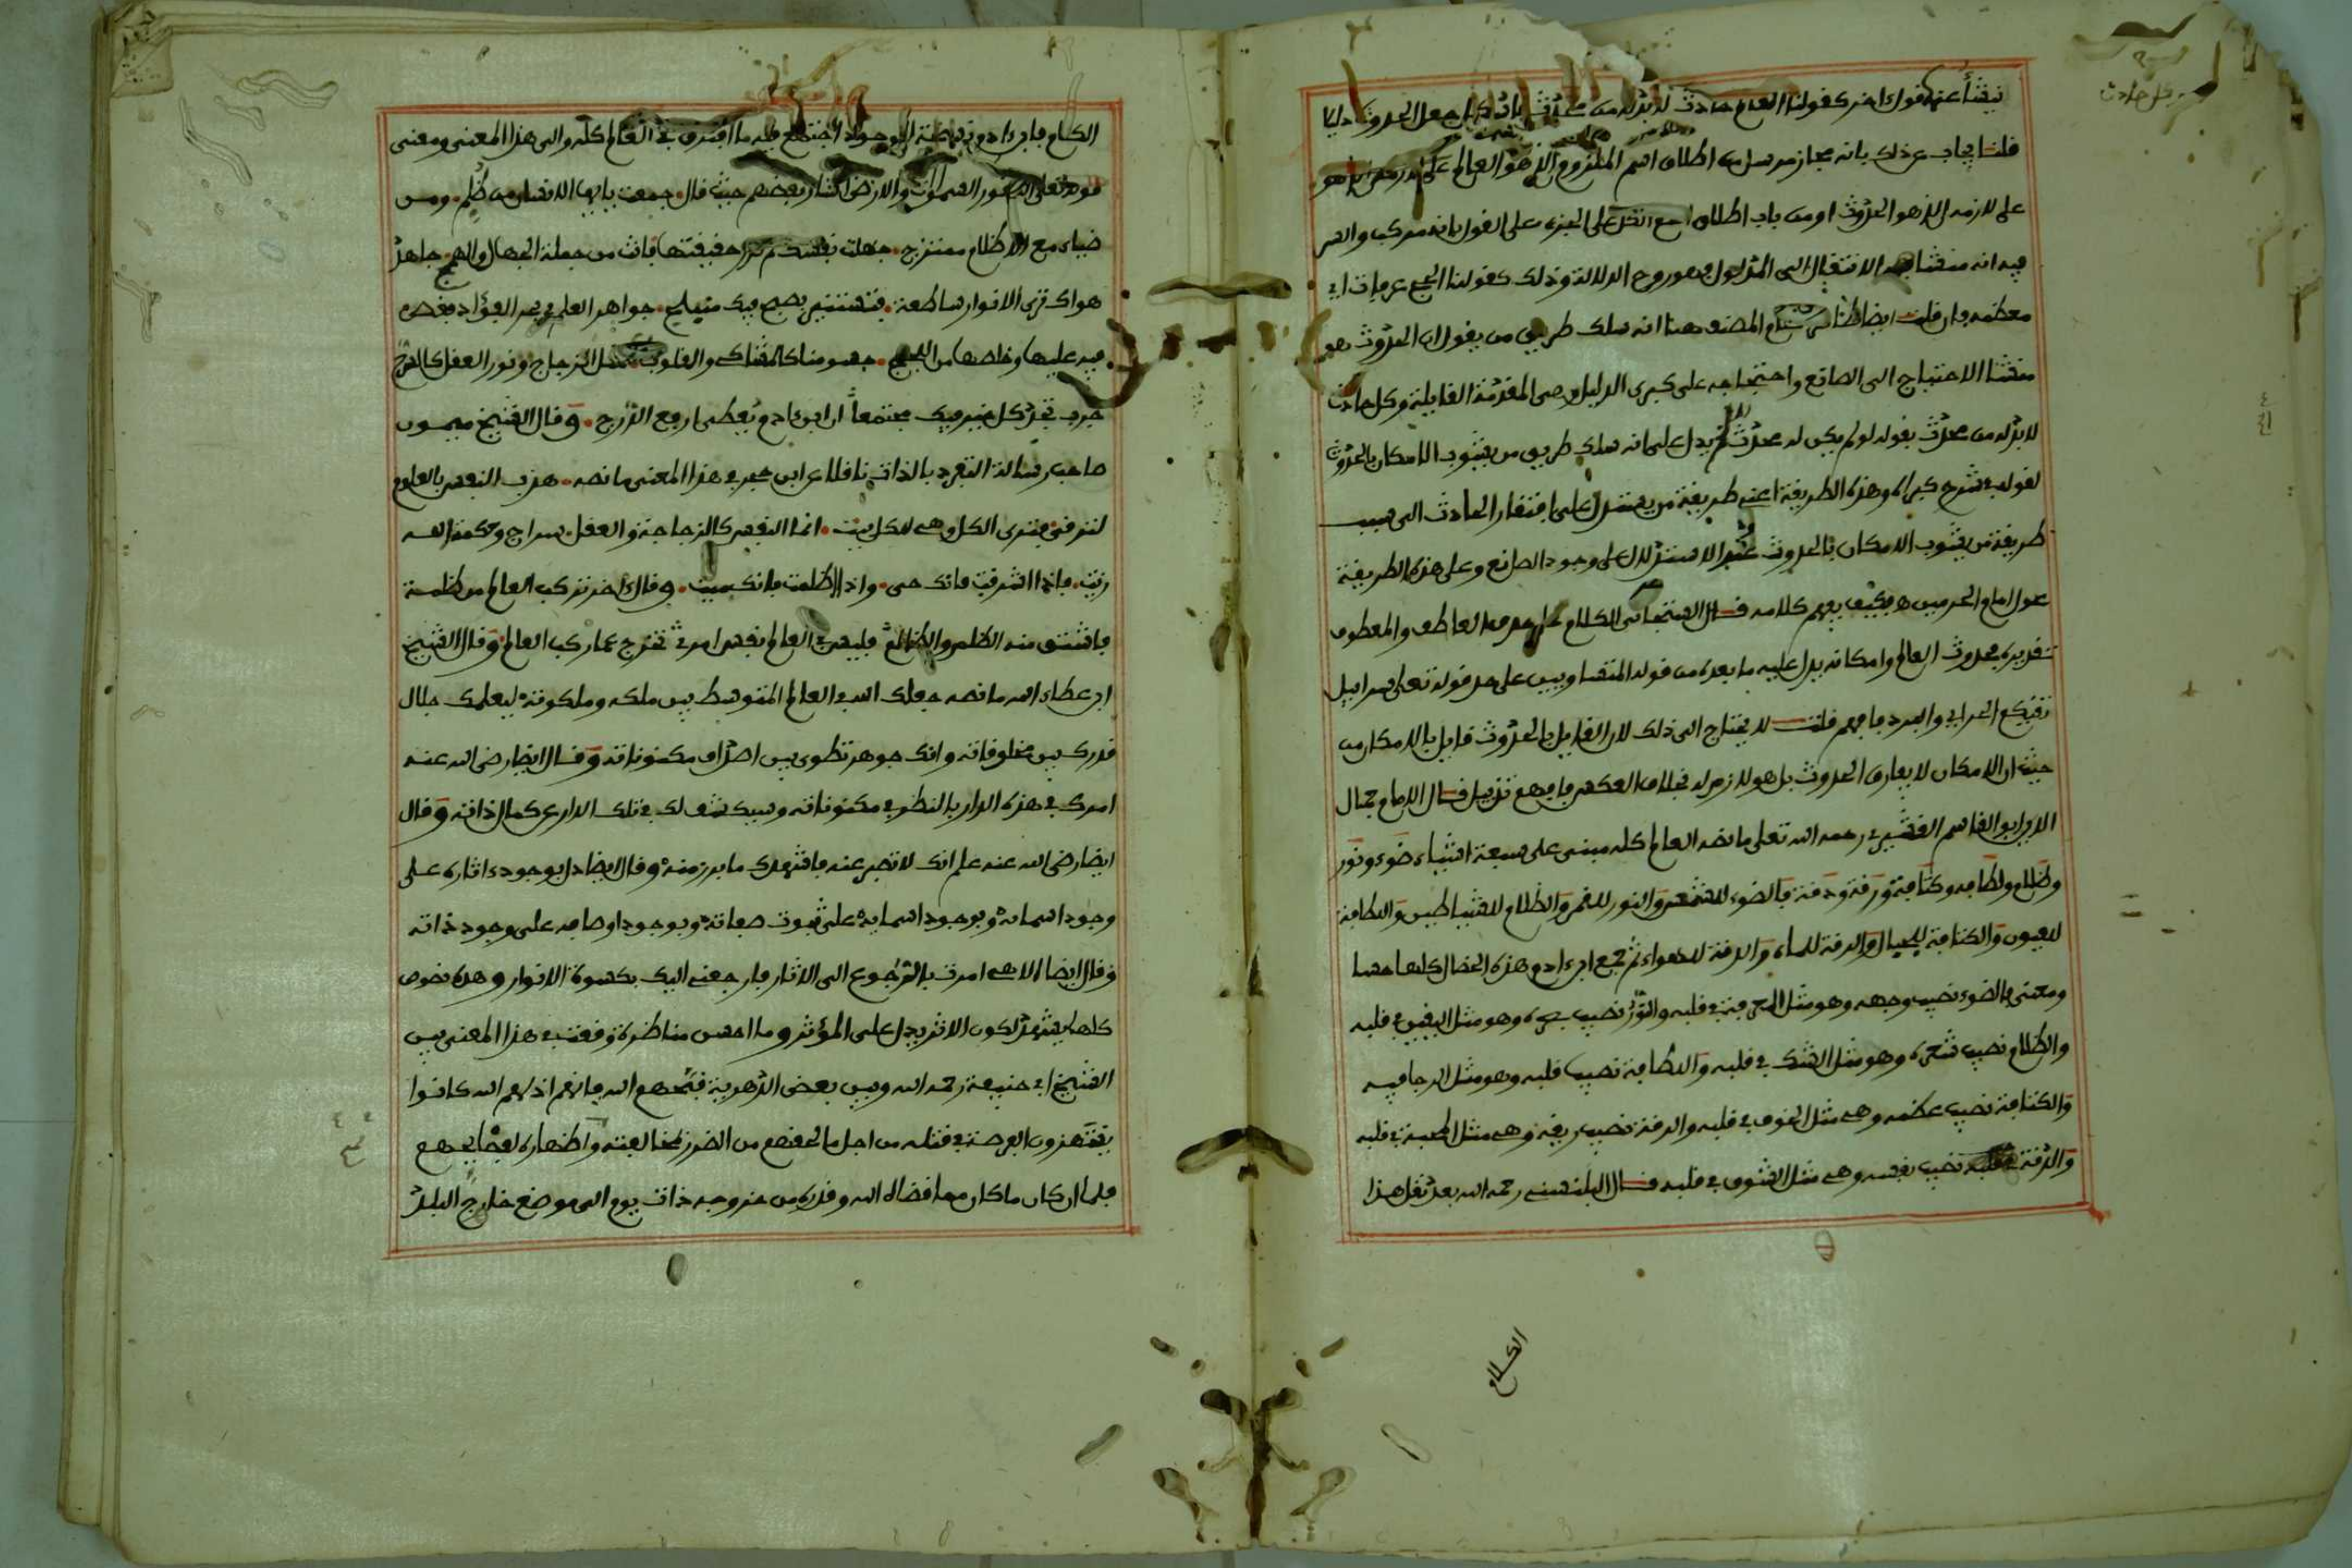 ينشأ عنه قول اخر كقولنا العالم حادث لا بد له من محدث جعل الحدوث دليلا
قلنا يجاب عن ذلك بانه مجاز مرسل من اطلاق اسم الملزوم الذي هو العالم على
على لازمه الذي هو الحدوث او من باب اطلاق اسم الكل على الجزء على القول بانه مركب والسر
فيه انه منشا الانتقال الى المدلول فهو روح الدلالة وذلك كقولنا الحج عرفات اي
معظمه فان قلت ايضا ظاهر كلام المصنف هنا انه سلك طريق من يقول ان الحدوث هو
منشا الاحتياج الى الصانع واحتجاجه على كبرى الدليل وهي المقدمة القايلة وكل حادث
لا بد له من محدث بقوله لو لم يكن له محدث يدل على انه سلك طريق من يشوب الامكان بالحدوث
لقوله في شرح كبراه وهذه الطريقة اعني طريقة من يستدل على افتقار الحادث الى سبب
طريقة من يشوب الامكان بالحدوث عند الاستدلال على وجود الصانع وعلى هذه الطريقة
عول امام الحرمين فكيف يفهم كلامه قال الشيخاني الكلام على حذف العاطف والمعطوف
تقديره بحدوث العالم وامكانه يدل عليه ما بعده من قوله المتساويين على حد قوله تعلى سرابيل
تقيكم الحر اي والبرد فافهم قلت لا يحتاج الى ذلك لان القايل بالحدوث قايل بالامكان من
حيث ان الامكان لا يفارق الحدوث بل هو لازم له بخلاف العكس فافهم تذييل قال الامام جمال
الدين ابو القاسم القشيري رحمه الله تعلى ما نصه العالم كله مبني على سبعة اشياء ضوء ونور
وظلام ولطافة وكثافة ورقة ودقة فالضوء للشمس والنور للقمر والظلام للشياطين واللطافة
للعيون والكثافة للجبال والرقة للماء والدقة للهواء ثم جمع ابن ءادم هذه الخصال كلها معنا
ومعنى فالضوء نصيب وجهه وهو مثل المعرفة في قلبه والنور نصيب بصره وهو مثل اليقين في قلبه
والظلام نصيب شعره وهو مثل الشك في قلبه واللطافة نصيب قلبه وهو مثل الرجا فيه
والكثافة نصيب عظمه وهي مثل الخوف في قلبه والرقة نصيب ريقه وهي مثل المحبة في قلبه
والدقة نصيب نفسه وهي مثل الشوق في قلبه قال البلنسي رحمه الله بعد نقل هذا
الكلام
الكلام فابن ءادم نسخة الوجود اجتمع فيه ما افترق في العالم كله والى هذا المعنى ومعنى
قوله تعلى الله نور السموات والارض اشار بعضهم حيث قال جمعت يا ايها الانسان من ظلم ومن
ضياء مع الاظلام ممتزج جهلت نفسك لم تدر حقيقتها فانت من جملة الجهال والهمج جاهد
هواك ترى الانوار ساطعة فتستنير بصبح فيك منبلج جواهر العلم في بحر الفؤاد فغص
فيه عليها وخلصها من اللجج جسومنا كالمشكاة والقلوب مثل الزجاج ونور العقل كالسرج
جرب تجد كل خير فيك مجتمعا ان ابن ءادم يعطى ارفع الدرج وقال الشيخ ميمون
صاحب رسالة التفرد بالذات ناقلا عن ابن في هذا المعنى ما نصه هذب النفس بالعلوم
لترقى فترى الكل وهي للكل بيت انما النفس كالزجاجة والعقل سراج وحكمة الله
زيت فاذا اشرقت فانك حي واذا اظلمت فانك ميت وقال اخر تركب العالم من ظلمة
فاشتق منه الظلم والظالم فليس في العالم نفس امرئ تخرج عما ركب العالم وقال الشيخ
ابن عطاء الله ما نصه جعلك الله في العالم المتوسط بين ملكه وملكوته ليعلمك جلال
قدرك بين مخلوقاته وانك جوهر تطوى بين اصداف مكنوناته وقال ايضا رضي الله عنه
امرك في هذه الدار بالنظر في مكنوناته وسيكشف لك في تلك الدار عن كمال ذاته وقال
ايضا رضي الله عنه علم انك لا تصبر عنه فاشهدك ما برز منه وقال ايضا دل بوجود ءاثاره على
وجود اسمائه وبوجود اسمايه على ثبوت صفاته وبوجود اوصافه على وجود ذاته
وقال ايضا الاهي امرت بالرجوع الى الاثار فارجعني اليك بكسوة الانوار وهذه نصوص
كلها يشهد لكون الاثر يدل على المؤثر وما احسن مناظرة وقعت في هذا المعنى بين
الشيخ ابي حنيفة رحمه الله وبين بعض الدهرية قبحهم الله فانهم اذلهم الله كانوا
ينتهزون الفرصة في قتله من اجل ما لحقهم من الضرر لمخالفته واظهاره لفضايحهم
فلما ان كان ما كان مما قضاه الله وقدره من خروجه ذات يوم الى موضع خارج البلد